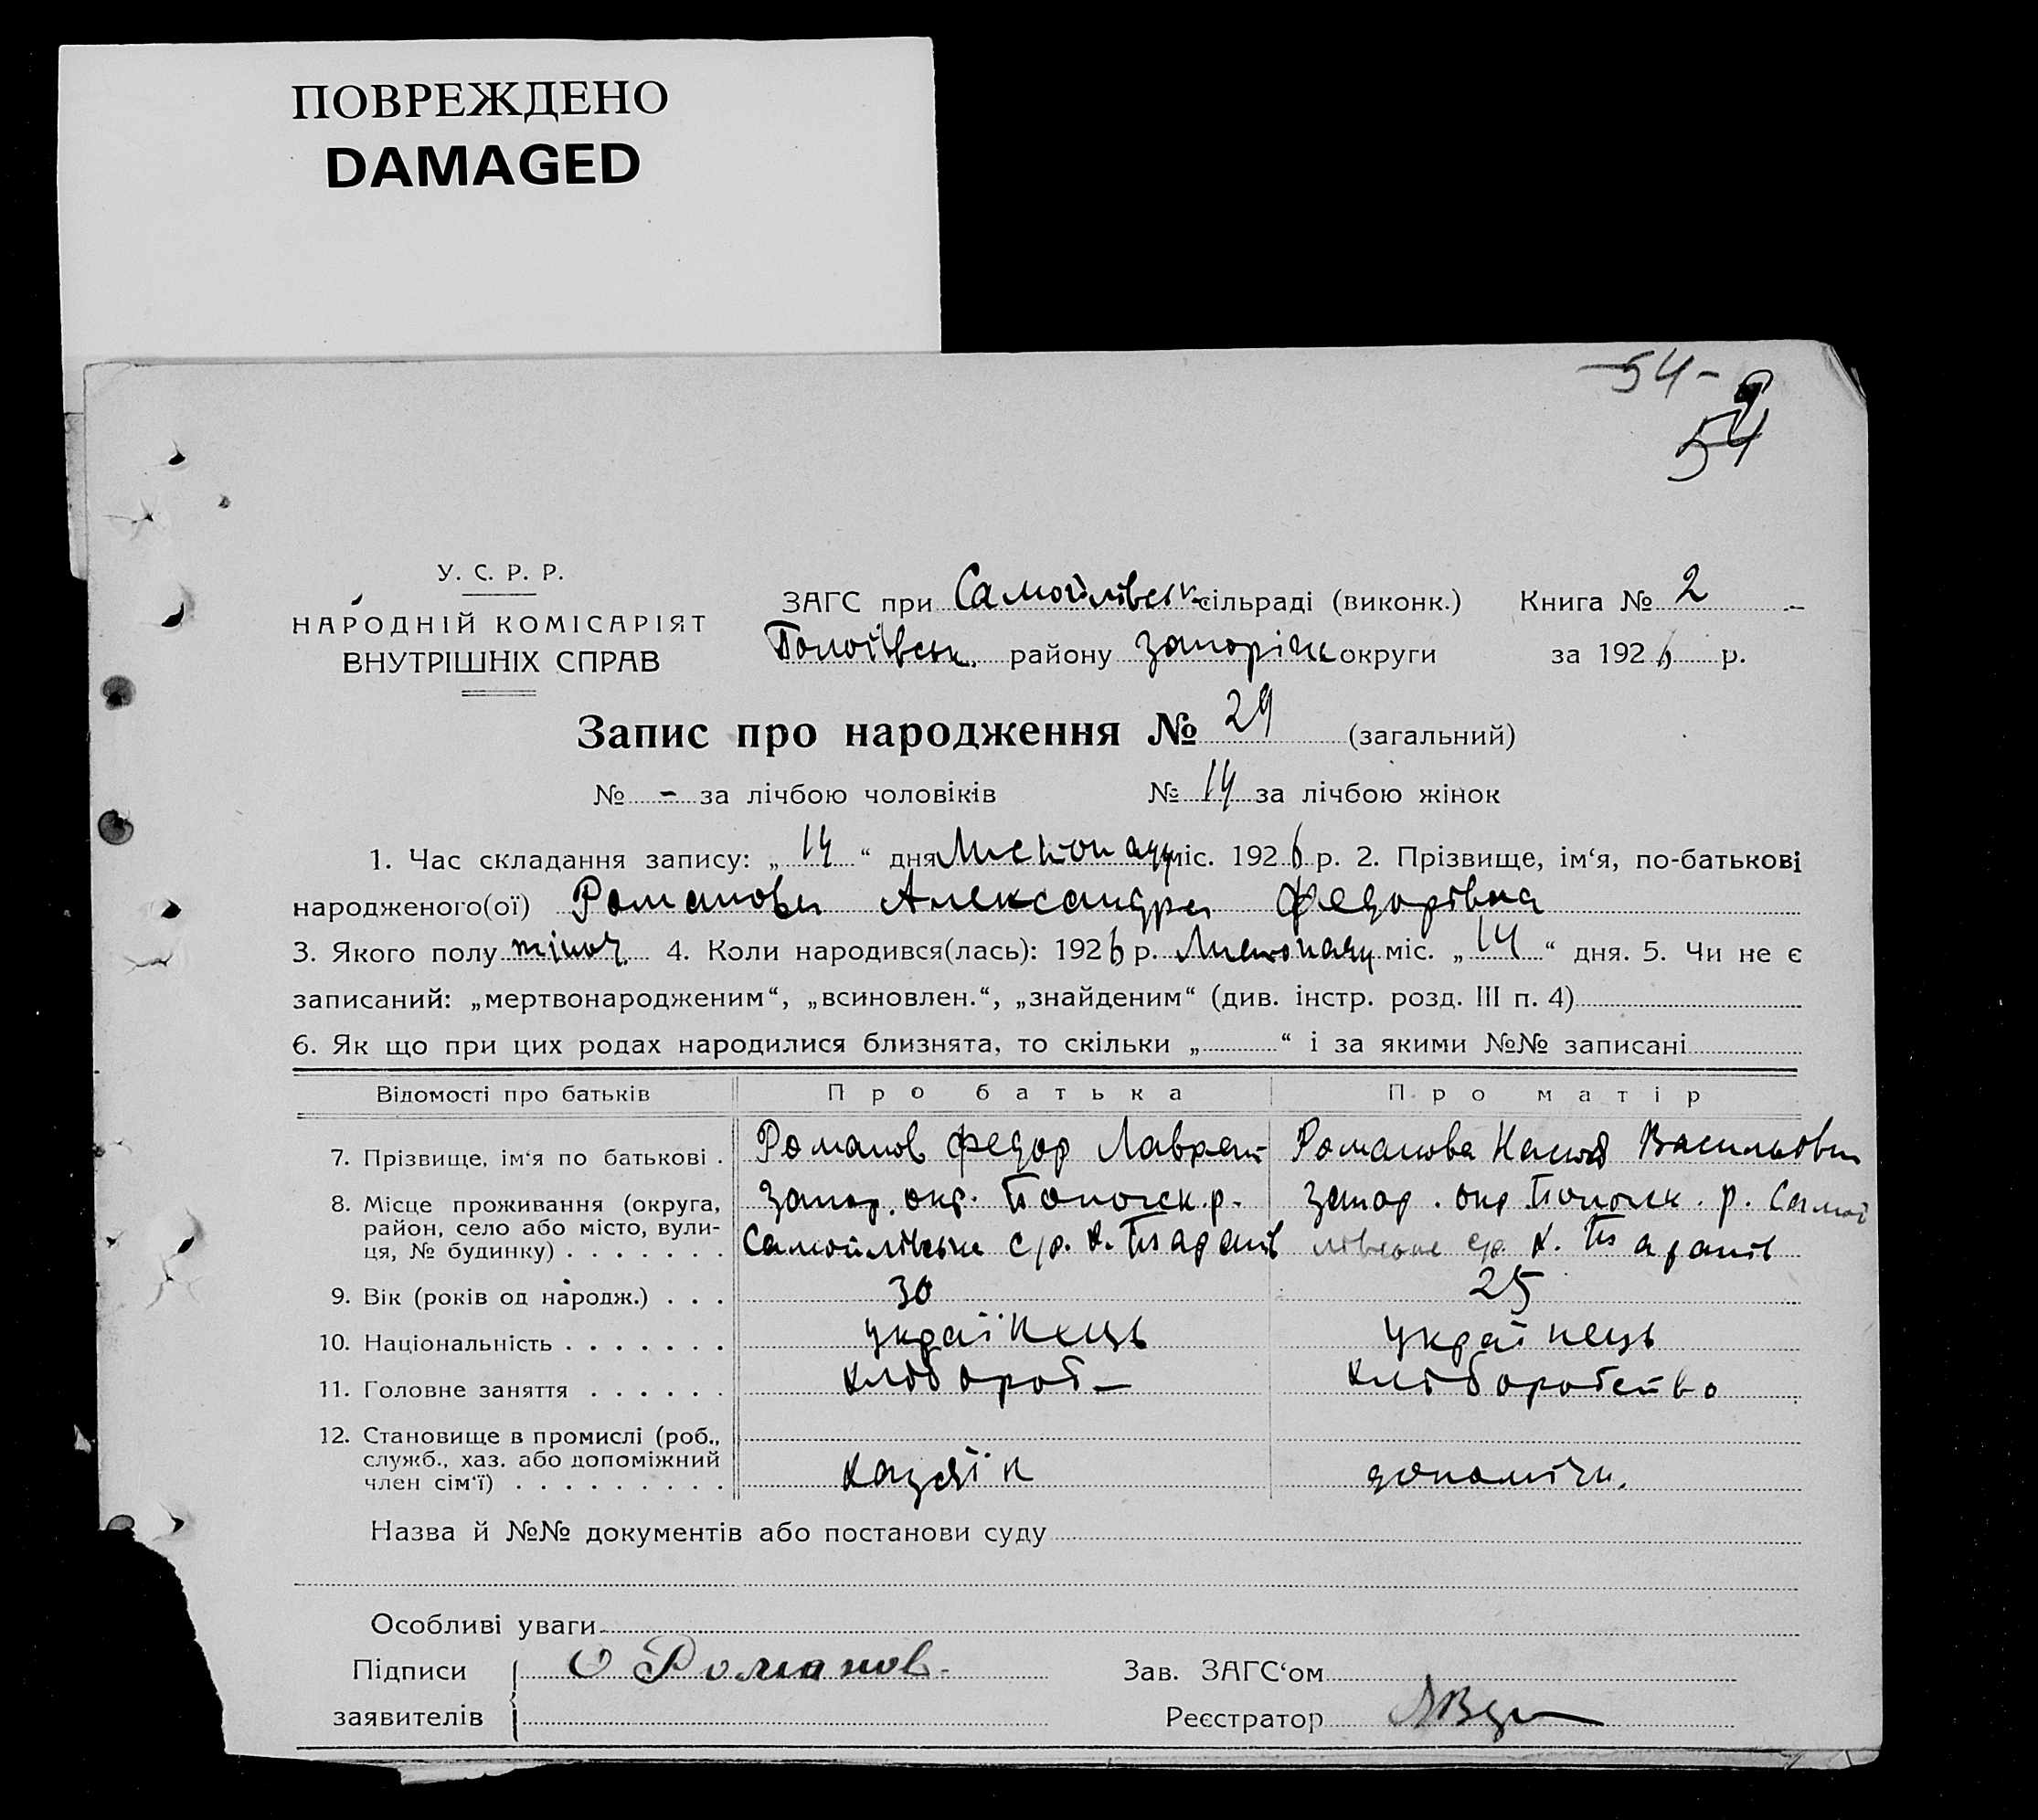 ПОВРЕЖДЕНО
DAMAGED
-54-
54
У. С. Р. Р.
НАРОДНІЙ КОМІСАРІЯТ
ВНУТРІШНІХ СПРАВ
ЗАГС при Самойлівськ сільраді (виконк.) Книга № 2
району Запоріж округи за 1926 р.
Запис про народження № 29 (загальний)
№ - за лічбою чоловіків № 14 за лічбою жінок
1. Час складання запису: „ 14 “ дня Листопаду міс. 1926 р. 2. Прізвище, ім‘я, по-батькові
народженого(ої) Романова Александра Федорівна
3. Якого полу жіноч. 4. Коли народився(лась): 1926 р. Листопаду міс. „ 14 “ дня. 5. Чи не є
записаний: „мертвонародженим“, „всиновлен.“, „знайденим“ (див. інстр. розд. III п. 4)
6. Як що при цих родах народилися близнята, то скільки „ “ і за якими №№ записані
Відомості про батьків Про батька Про матір
7. Прізвище, ім‘я по батькові . Романов Федор Лаврен Романова Васильовн
8. Місце проживання (округа, Запор. окр. р. Запор. окр. р. Самої
район, село або місто, вули-
ця, № будинку) . . . . . . . Самойлівськ с/р. х. с/р. х.
9. Вік (років од народж.) . . . 30 25
10. Національність . . . . . . . українець українець
11. Головне заняття . . . . . . хлібороб- хліборобство
12. Становище в промислі (роб.,
служб., хаз. або допоміжний
член сім‘ї) . . . . . . . . . хазяїн допоміжн.
Назва й №№ документів або постанови суду
Особливі уваги
Підписи Романов. Зав. ЗАГС‘ом
заявителів Реєстратор